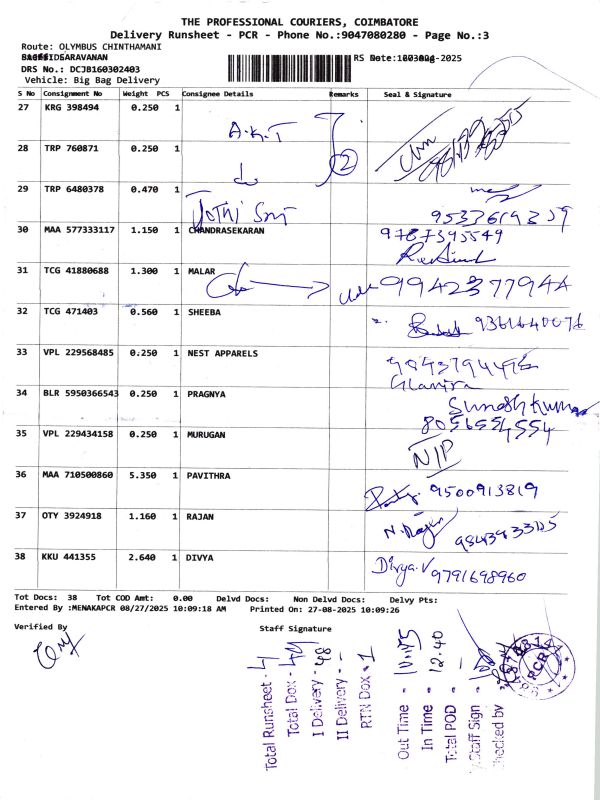 THE PROFESSIONAL COURIERS, COIMBATORE
Delivery Runsheet - PCR - Phone No.:9047080280 - Page No.:3
Route: OLYMBUS CHINTHAMANI
DRS No.: DCJB160302403
Vehicle: Big Bag Delivery
S No Consignment No Weight PCS Consignee Details Remarks Seal & Signature
27 KRG 398494 0.250 1 A.K.T
28 TRP 760871 0.250 1 2
29 TRP 6480378 0.470 1 Jothi Sri
30 MAA 577333117 1.150 1 CHANDRASEKARAN 9787395549
31 TCG 41880688 1.300 1 MALAR 9942377944
32 TCG 471403 0.560 1 SHEEBA 9361640076
33 VPL 229568485 0.250 1 NEST APPARELS
34 BLR 5950366543 0.250 1 PRAGNYA Suresh Kumar
8056554554
35 VPL 229434158 0.250 1 MURUGAN N/P
36 MAA 710500860 5.350 1 PAVITHRA 9500913819
37 OTY 3924918 1.160 1 RAJAN N. Rajan
38 KKU 441355 2.640 1 DIVYA Divya.V 9791698960
Tot Docs: 38 Tot COD Amt: 0.00 Delvd Docs: Non Delvd Docs: Delvy Pts:
Entered By :MENAKAPCR 08/27/2025 10:09:18 AM Printed On: 27-08-2025 10:09:26
Verified By Staff Signature
Total Runsheet - 4
Total Dox -
I Delivery - 48
II Delivery - -
RTN Dox - 1
Out Time -
In Time - 12.40
Total POD - -
Staff Sign -
Checked by
PCR